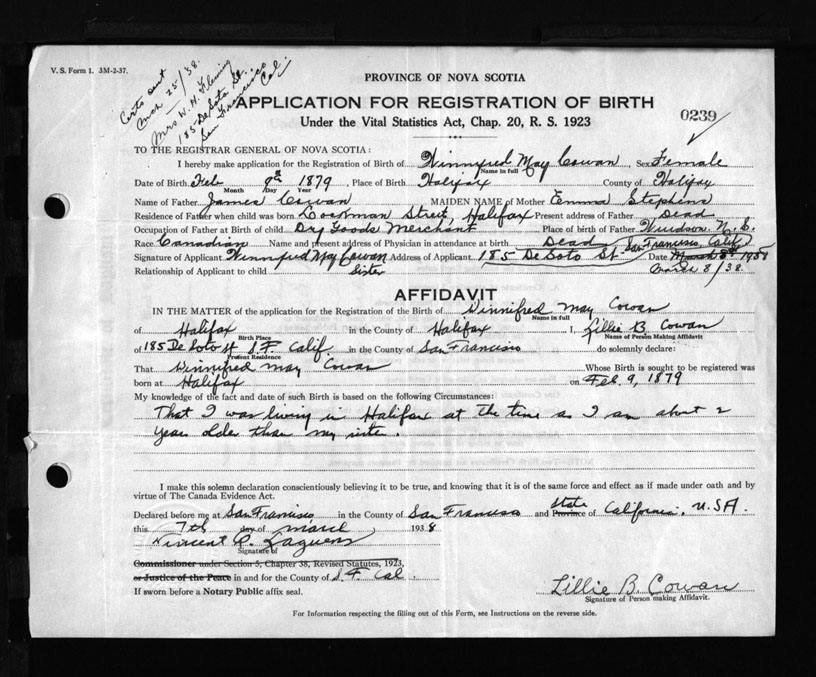 V. S. Form 1. 3M-2-37.
Certs sent
Mch 25/38.
Mrs W. H. Fleming
185 De Soto St.
San Francisco
Cal.
PROVINCE OF NOVA SCOTIA
APPLICATION FOR REGISTRATION OF BIRTH
Under the Vital Statistics Act, Chap. 20, R. S. 1923
0239
TO THE REGISTRAR GENERAL OF NOVA SCOTIA:
I hereby make application for the Registration of Birth of Winnyfred May Cowan, Sex Female
Name in full
Date of Birth Feb 9th 1879, Place of Birth Halifax County of Halifax
Month Day Year
Name of Father James Cowan MAIDEN NAME of Mother Emma Stephens
Residence of Father when child was born Street, Halifax Present address of Father Dead
Occupation of Father at Birth of child Dry Goods Merchant Place of birth of Father Windsor N. S.
Race Canadian Name and present address of Physician in attendance at birth Dead
Signature of Applicant Winnyfred May Cowan Address of Applicant 185 De Soto St San Francisco, Calif Date March 8th 1938
March 8/38.
Relationship of Applicant to child Sister
AFFIDAVIT
IN THE MATTER of the application for the Registration of the Birth of Winnifred May Cowan
Name in full
of Halifax in the County of Halifax I, Lillie B. Cowan
Birth Place Name of Person Making Affidavit
of 185 De Soto St S. F. Calif. in the County of San Francisco do solemnly declare:
Present Residence
That Winnifred May Cowan Whose Birth is sought to be registered was
born at Halifax on Feb. 9, 1879
My knowledge of the fact and date of such Birth is based on the following Circumstances:
That I was living in Halifax at the time as I am about 2
years older than my sister.
I make this solemn declaration conscientiously believing it to be true, and knowing that it is of the same force and effect as if made under oath and by
virtue of The Canada Evidence Act.
Declared before me at San Francisco in the County of San Francisco and Province State of California. U.S.A.
this 7th day of March, 1938
Vincent
Signature of
Commissioner under Section 5, Chapter 38, Revised Statutes, 1923,
or Justice of the Peace in and for the County of S. F. Cal.
If sworn before a Notary Public affix seal.
Lillie B. Cowan
Signature of Person making Affidavit.
For Information respecting the filling out of this Form, see Instructions on the reverse side.